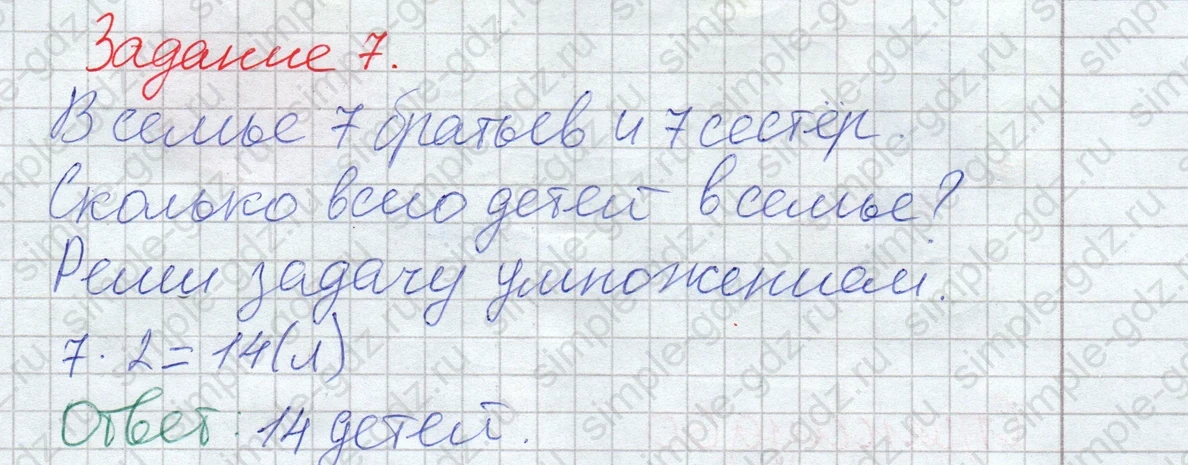 Задание 7.
В семье 7 братьев и 7 сестёр.
Сколько всего детей в семье?
Реши задачу умножением.
7 · 2 = 14 (л)
Ответ: 14 детей.
simple-gdz.ru